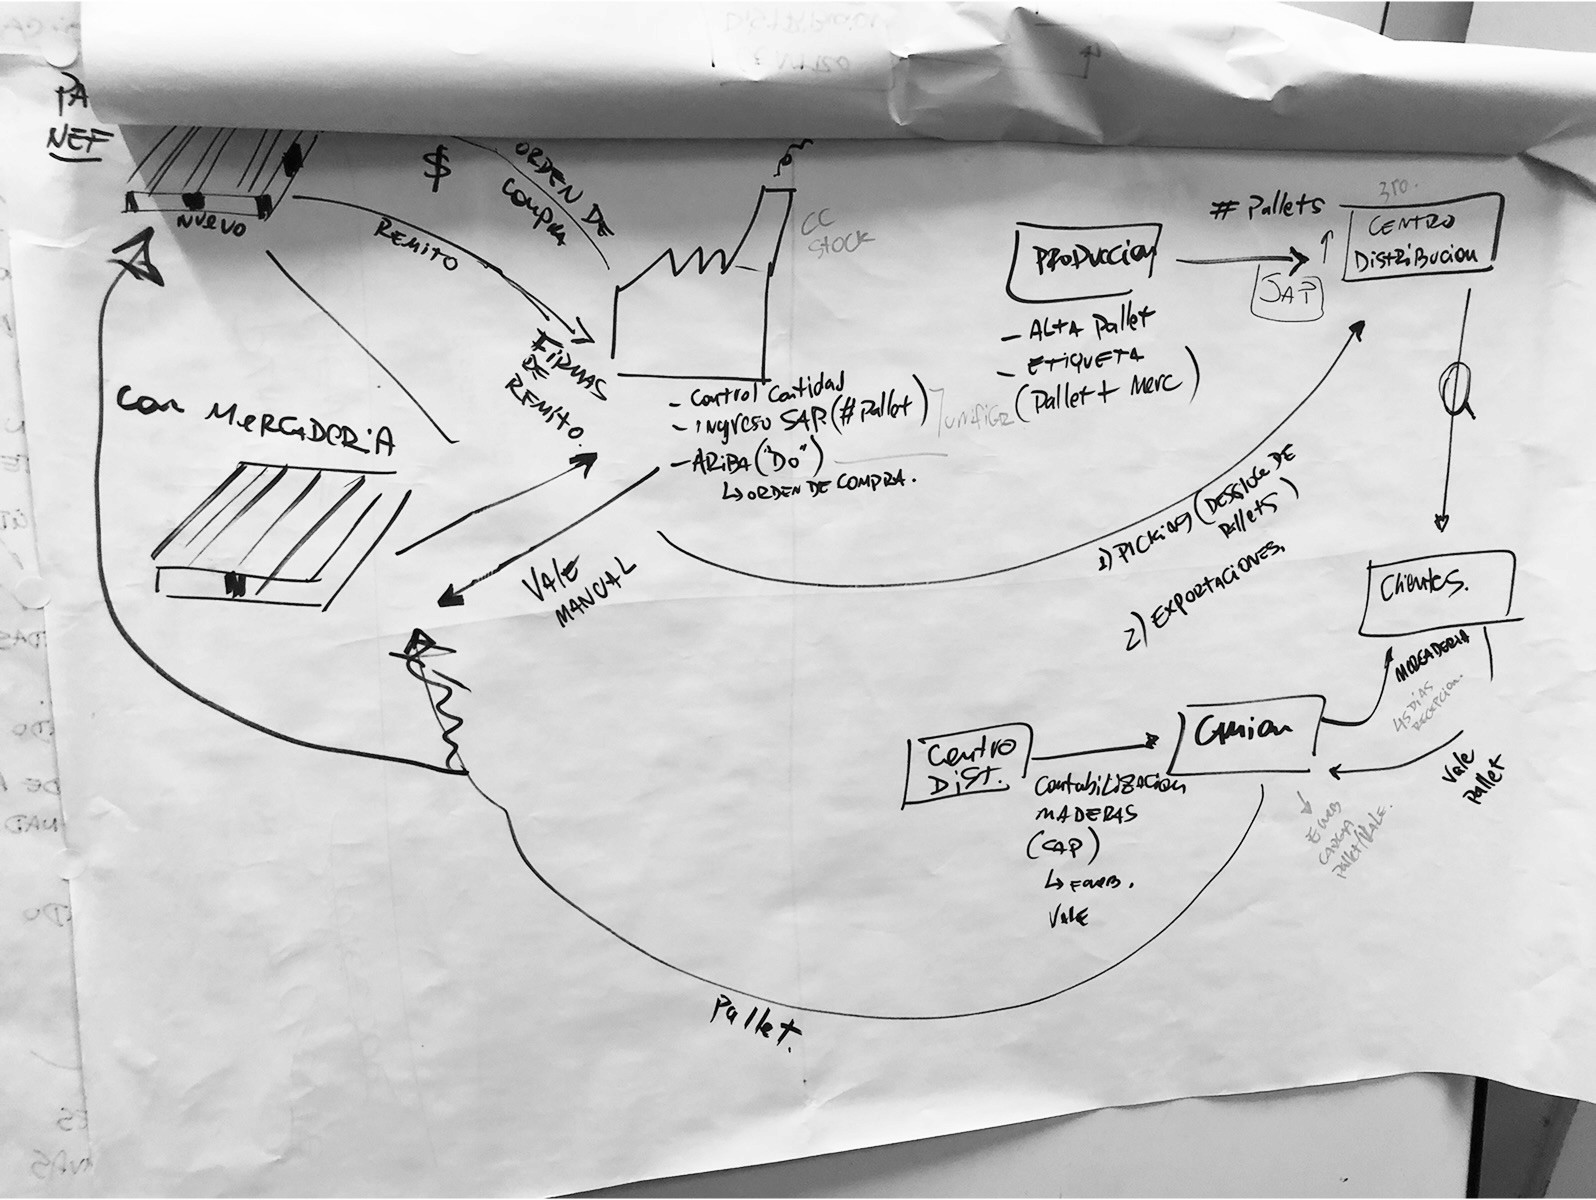 NUEVO
$
ORDEN DE
COMPRA
REMITO
CC
STOCK
FIRMAS
DE
REMITO.
- Control Cantidad
- INgreso SAP (# Pallet)
- ARIBA ("DO")
↳ ORDEN DE COMPRA.
CON MERCADERIA
VALE
MANUAL
PRODUCCION
- ALTA Pallet
- ETIQUETA
(Pallet + Merc)
# Pallets
SAP
3ro.
CENTRO
DISTRIBUCION
1) PICKING (DESGLOCE DE
Pallets)
2) EXPORTACIONES.
Clientes.
MERCADERIA
45 DIAS
RECEPCION.
Vale
pallet
Camion
CARGA
Pallet/VALE.
Centro
DIST.
Contabilizacion
MADERAS
(SAP)
VALE
Pallet.